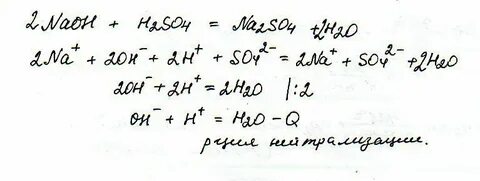 2NaOH + H₂SO₄ = Na₂SO₄ + 2H₂O
2Na⁺ + 2OH⁻ + 2H⁺ + SO₄²⁻ = 2Na⁺ + SO₄²⁻ + 2H₂O
2OH⁻ + 2H⁺ = 2H₂O |:2
OH⁻ + H⁺ = H₂O – Q
р-ция нейтрализации.